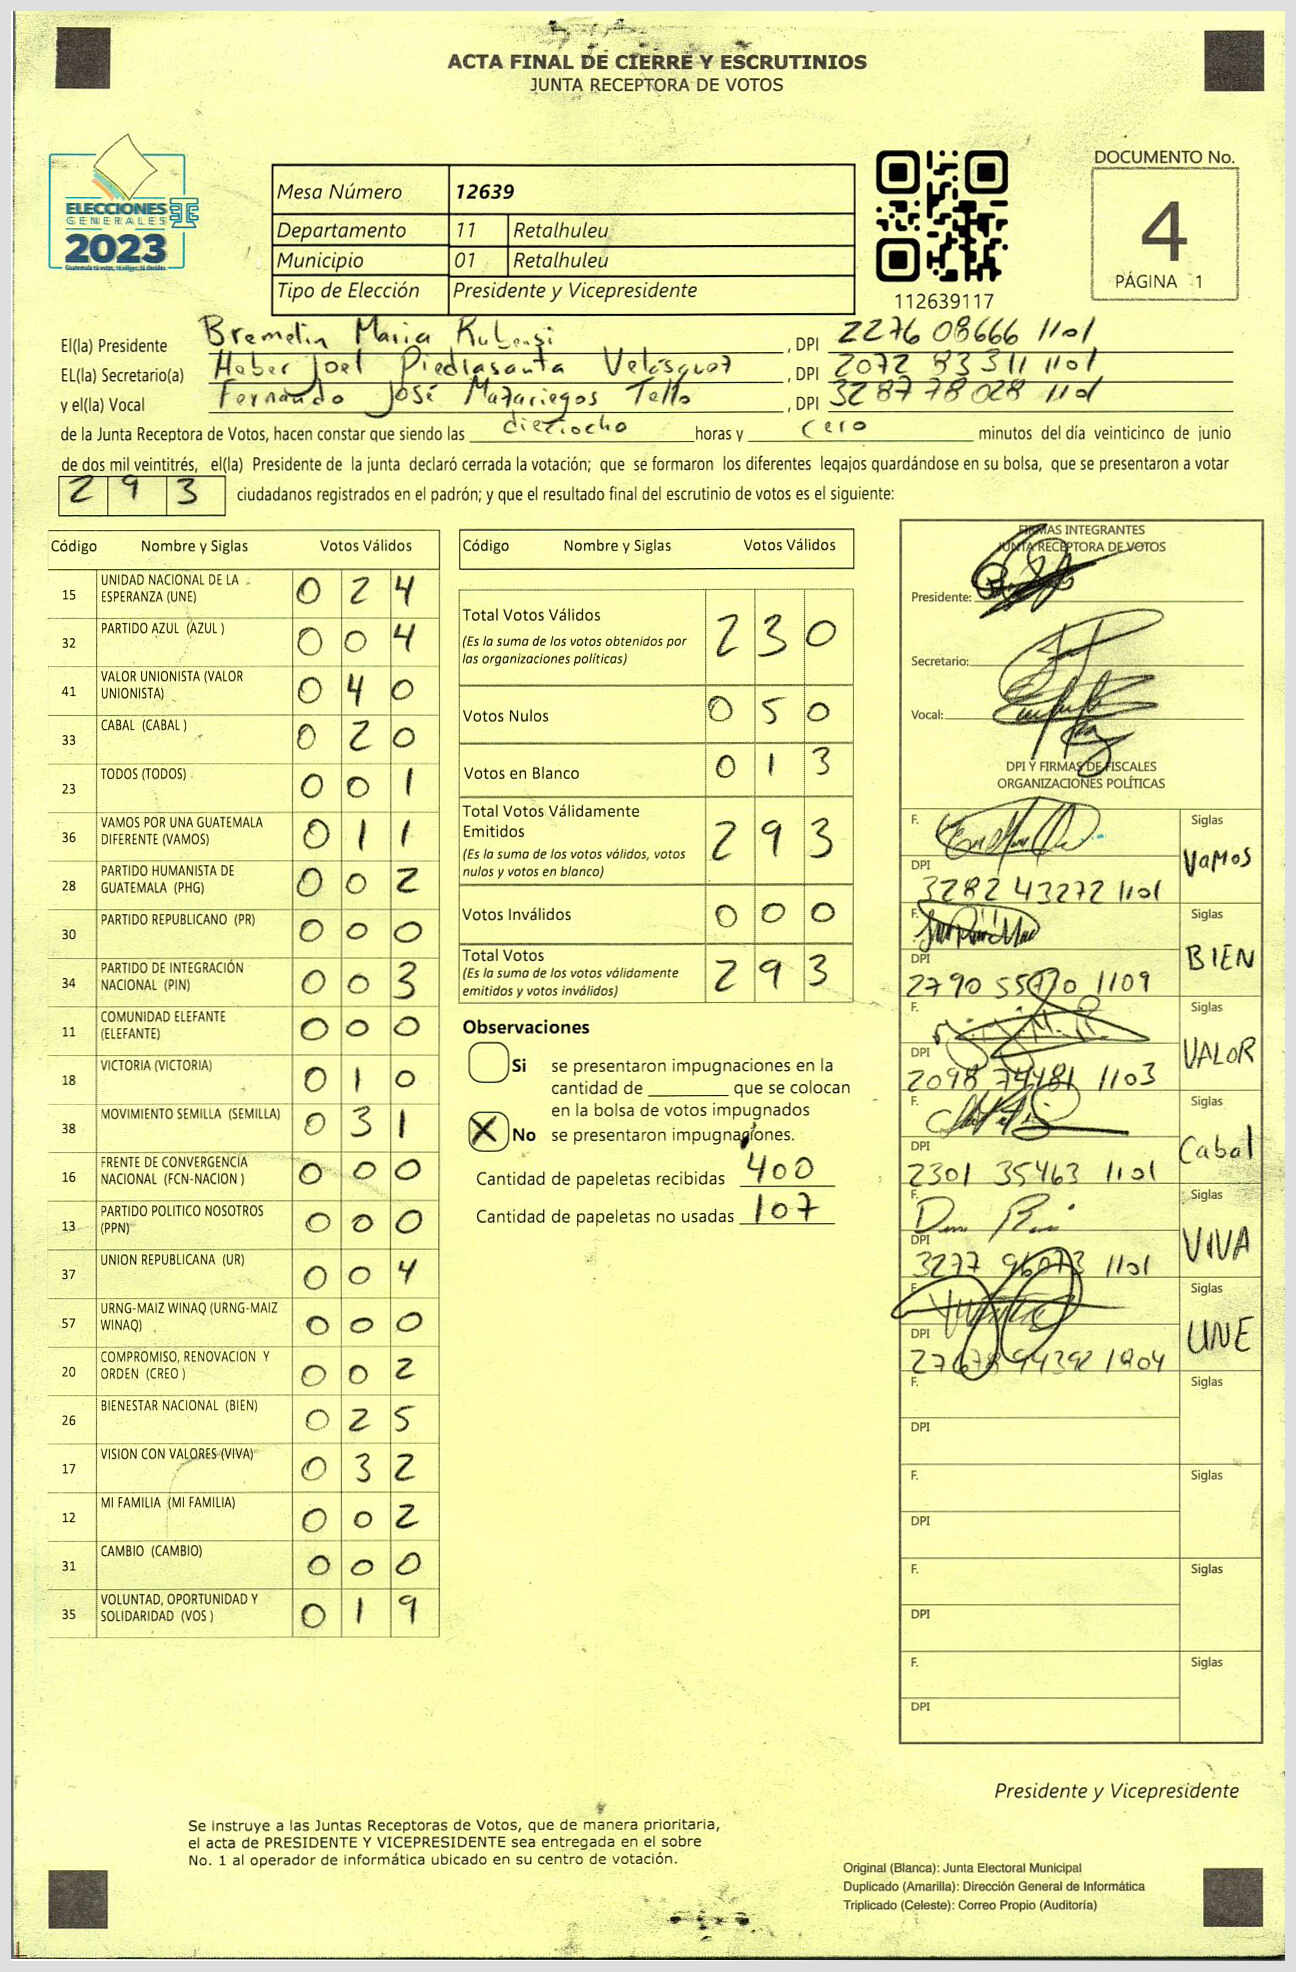 ACTA FINAL DE CIERRE Y ESCRUTINIOS
JUNTA RECEPTORA DE VOTOS
ELECCIONES
GENERALES
2023
Mesa Número 12639
Departamento 11 Retalhuleu
Municipio 01 Retalhuleu
Tipo de Elección Presidente y Vicepresidente
112639117
DOCUMENTO No.
4
PÁGINA 1
El(la) Presidente Bremelin Maria, DPI 2276 08666 1101
EL(la) Secretario(a) Heber Joel Piedrasanta Velásquez, DPI 2072 83311 1101
y el(la) Vocal Fernando José Mazariegos Tello, DPI 3287 78028 1101
de la Junta Receptora de Votos, hacen constar que siendo las dieciocho horas y cero minutos del día veinticinco de junio
de dos mil veintitrés, el(la) Presidente de la junta declaró cerrada la votación; que se formaron los diferentes legajos guardándose en su bolsa, que se presentaron a votar
293 ciudadanos registrados en el padrón; y que el resultado final del escrutinio de votos es el siguiente:
Código Nombre y Siglas Votos Válidos
15 UNIDAD NACIONAL DE LA ESPERANZA (UNE) 024
32 PARTIDO AZUL (AZUL ) 004
41 VALOR UNIONISTA (VALOR UNIONISTA) 040
33 CABAL (CABAL ) 020
23 TODOS (TODOS) 001
36 VAMOS POR UNA GUATEMALA DIFERENTE (VAMOS) 011
28 PARTIDO HUMANISTA DE GUATEMALA (PHG) 002
30 PARTIDO REPUBLICANO (PR) 000
34 PARTIDO DE INTEGRACIÓN NACIONAL (PIN) 003
11 COMUNIDAD ELEFANTE (ELEFANTE) 000
18 VICTORIA (VICTORIA) 010
38 MOVIMIENTO SEMILLA (SEMILLA) 031
16 FRENTE DE CONVERGENCIA NACIONAL (FCN-NACION ) 000
13 PARTIDO POLITICO NOSOTROS (PPN) 000
37 UNION REPUBLICANA (UR) 004
57 URNG-MAIZ WINAQ (URNG-MAIZ WINAQ) 000
20 COMPROMISO, RENOVACION Y ORDEN (CREO ) 002
26 BIENESTAR NACIONAL (BIEN) 025
17 VISION CON VALORES (VIVA) 032
12 MI FAMILIA (MI FAMILIA) 002
31 CAMBIO (CAMBIO) 000
35 VOLUNTAD, OPORTUNIDAD Y SOLIDARIDAD (VOS ) 019
Código Nombre y Siglas Votos Válidos
Total Votos Válidos 230
(Es la suma de los votos obtenidos por
las organizaciones políticas)
Votos Nulos 050
Votos en Blanco 013
Total Votos Válidamente
Emitidos 293
(Es la suma de los votos válidos, votos
nulos y votos en blanco)
Votos Inválidos 000
Total Votos 293
(Es la suma de los votos válidamente
emitidos y votos inválidos)
Observaciones
Si se presentaron impugnaciones en la
cantidad de que se colocan
en la bolsa de votos impugnados
X No se presentaron impugnaciones.
Cantidad de papeletas recibidas 400
Cantidad de papeletas no usadas 107
FIRMAS INTEGRANTES
JUNTA RECEPTORA DE VOTOS
Presidente:
Secretario:
Vocal:
DPI Y FIRMAS DE FISCALES
ORGANIZACIONES POLÍTICAS
F. Siglas
DPI VAMOS
3282 43272 1101
F. Siglas
DPI BIEN
2790 1109
F. Siglas
DPI VALOR
2098 74481 1103
F. Siglas
DPI Cabal
2301 35463 1101
F. Siglas
DPI VIVA
3277 96073 1101
F. Siglas
DPI UNE
F. Siglas
DPI
F. Siglas
DPI
F. Siglas
DPI
F. Siglas
DPI
Presidente y Vicepresidente
Se instruye a las Juntas Receptoras de Votos, que de manera prioritaria,
el acta de PRESIDENTE Y VICEPRESIDENTE sea entregada en el sobre
No. 1 al operador de informática ubicado en su centro de votación.
Original (Blanca): Junta Electoral Municipal
Duplicado (Amarilla): Dirección General de Informática
Triplicado (Celeste): Correo Propio (Auditoría)